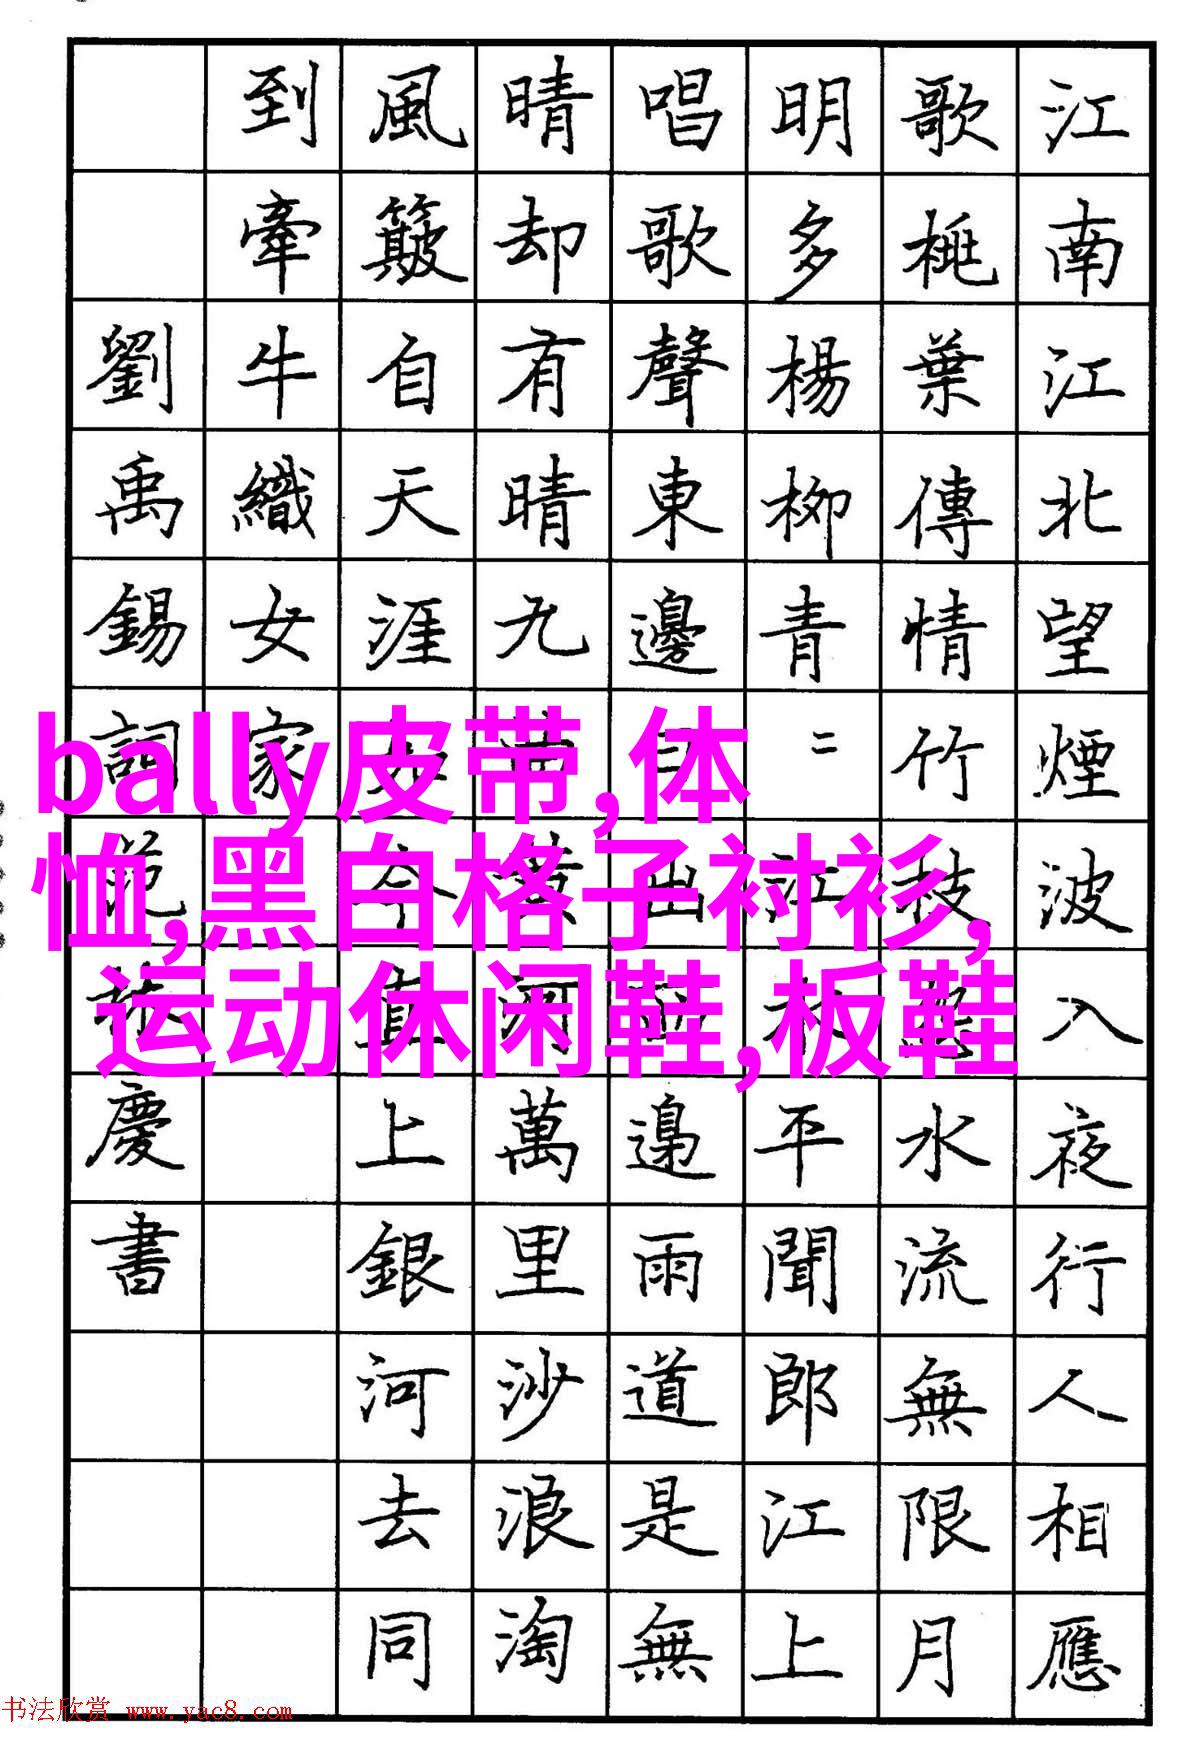 江南江北望煙波入夜行人相應
歌桃葉傳情竹枝怨水流無限月
明多楊柳青二江水平聞郎江上
唱歌聲東邊日出西邊雨道是無
晴却有晴九曲黃河萬里沙浪淘
風簸自天涯如今直上銀河去同
到牽牛織女家
劉禹錫詞慶書
bally皮带,体
恤,黑白格子衬衫,
运动休闲鞋,板鞋
书法欣赏 www.yac8.com